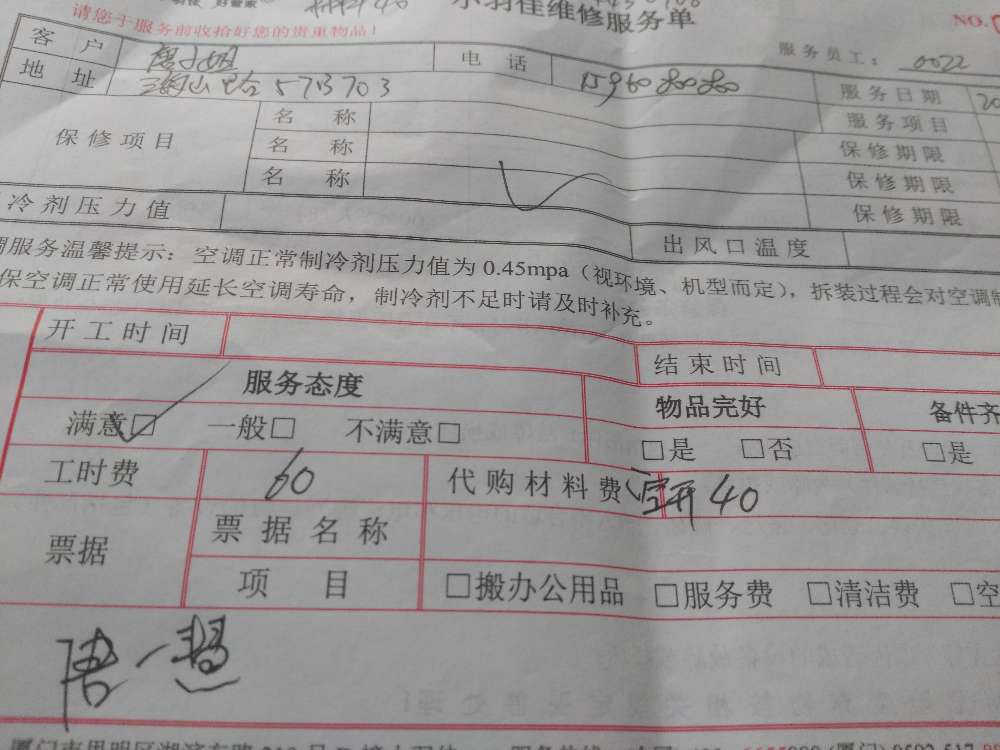 维修服务单
请您于服务前收拾好您的贵重物品!
NO.
服务员工: 0022
客 户 电 话 服务日期 20
地 址 573703 服务项目
保修项目 名 称 保修期限
名 称 保修期限
名 称 保修期限
冷剂压力值 出风口温度
调服务温馨提示: 空调正常制冷剂压力值为 0.45mpa (视环境、机型而定), 拆装过程会对空调制
保空调正常使用延长空调寿命, 制冷剂不足时请及时补充。
开工时间 结束时间
服务态度 物品完好 备件齐
满意□ 一般□ 不满意□ □是 □否 □是
工时费 60 代购材料费 空开 40
票据 票据名称
项 目 □搬办公用品 □服务费 □清洁费 □空
唐一慧